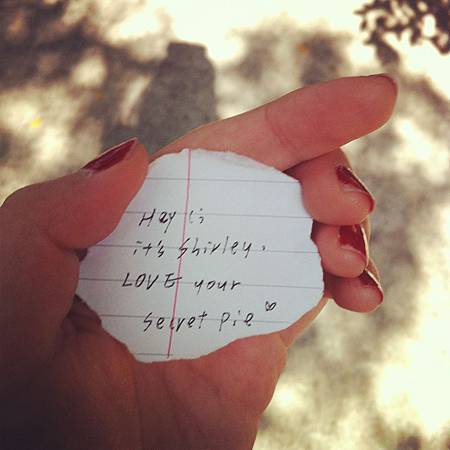 Hey (:
it's Shirley.
LOVE your
secret pie ♡